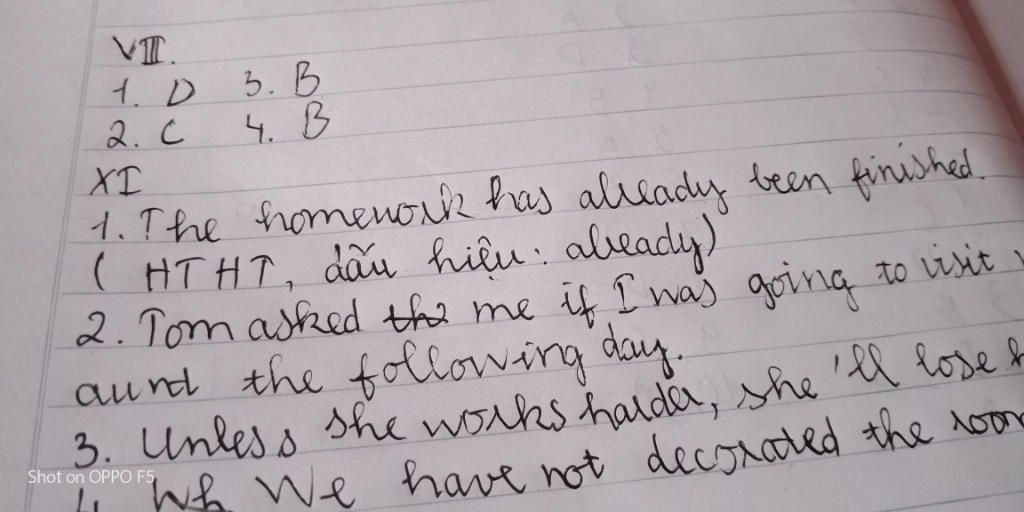 VIII.
1. D 3. B
2. C 4. B
XI
1. The homework has already been finished.
( HTHT, dấu hiệu: already)
2. Tom asked me if I was going to visit
aunt the following day.
3. Unless she works harder, she'll lose
4. We have not decorated the room
Shot on OPPO F5